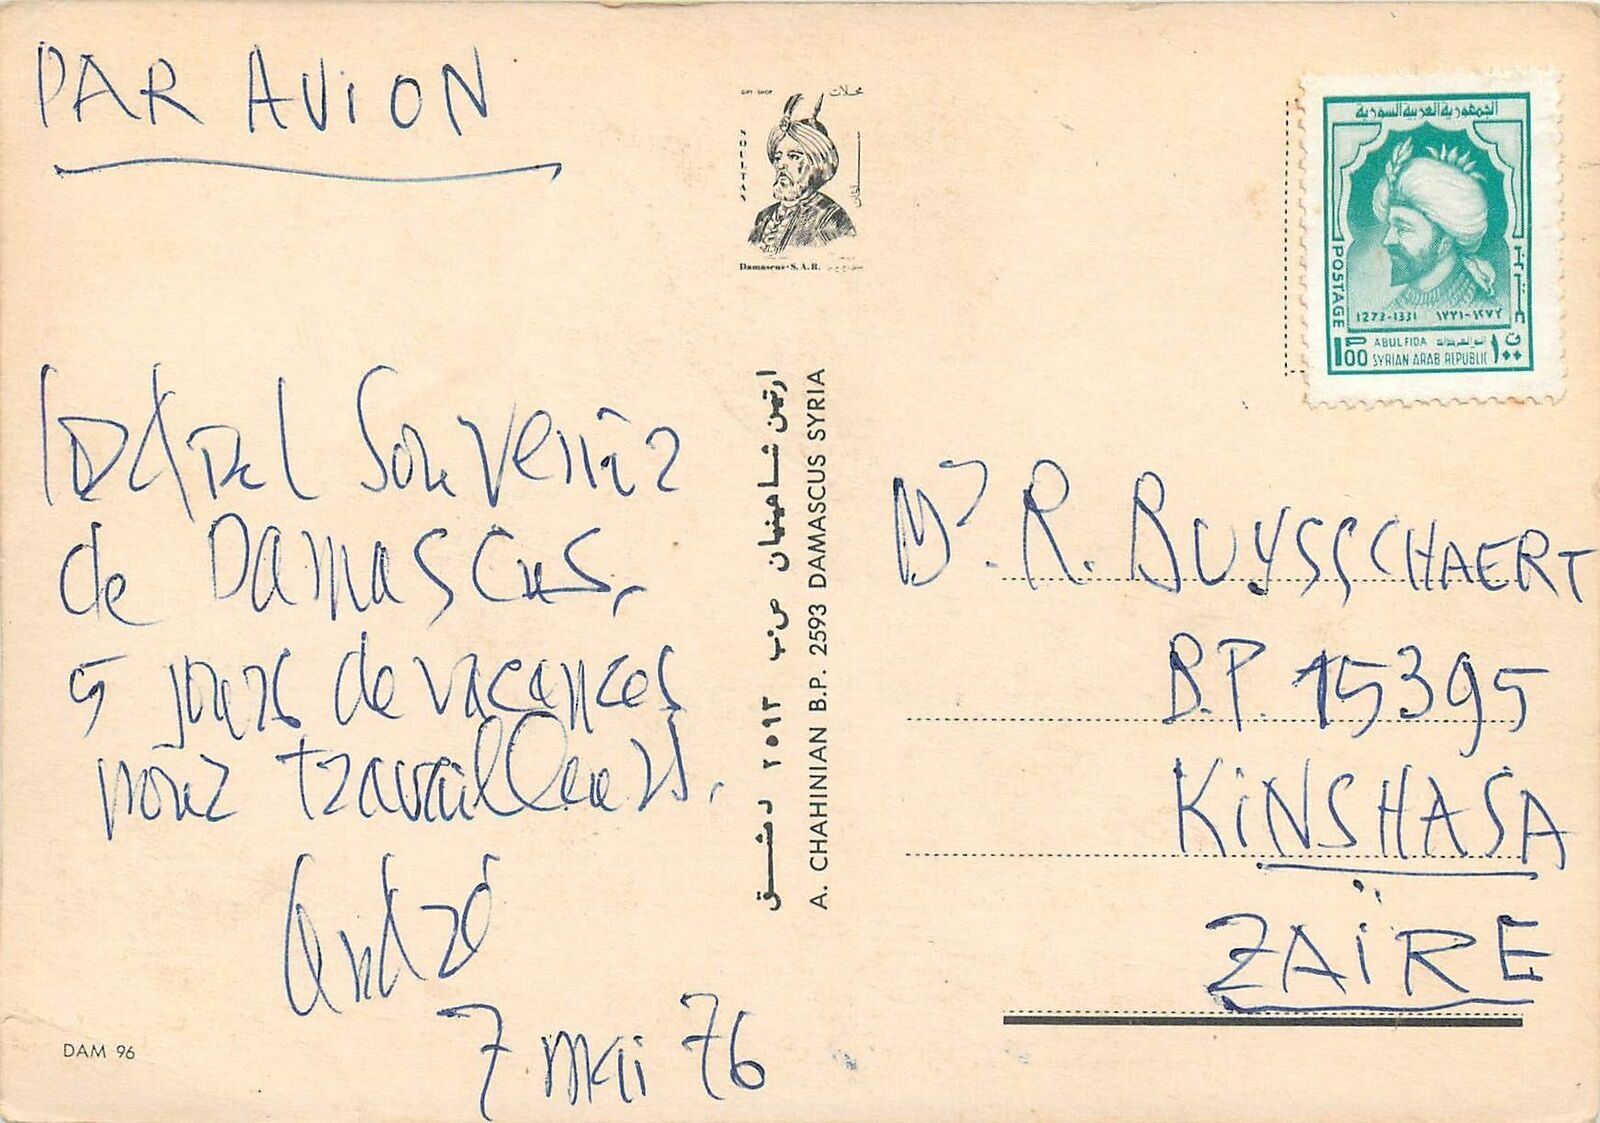 PAR AVION
GIFT-SHOP
محلات
SOLITAN
سلطان
Damascus-S.A.R.
الجمهورية العربية السورية
POSTAGE
بريد
1273-1331 ١٢٧٣-١٣٣١
ABUL FIDA ابو الفداء
1P00 SYRIAN ARAB REPUBLIC ق١٠٠
Souvenir
de Damascus,
5 jours de vacances
pour travailleurs.
André
7 mai 76
ارتين شاهينيان ص.ب ٢٥٩٣ دمشق
A. CHAHINIAN B.P. 2593 DAMASCUS SYRIA
Mr. R. BUYSSCHAERT
B.P. 15395
KINSHASA
ZAÏRE
DAM 96